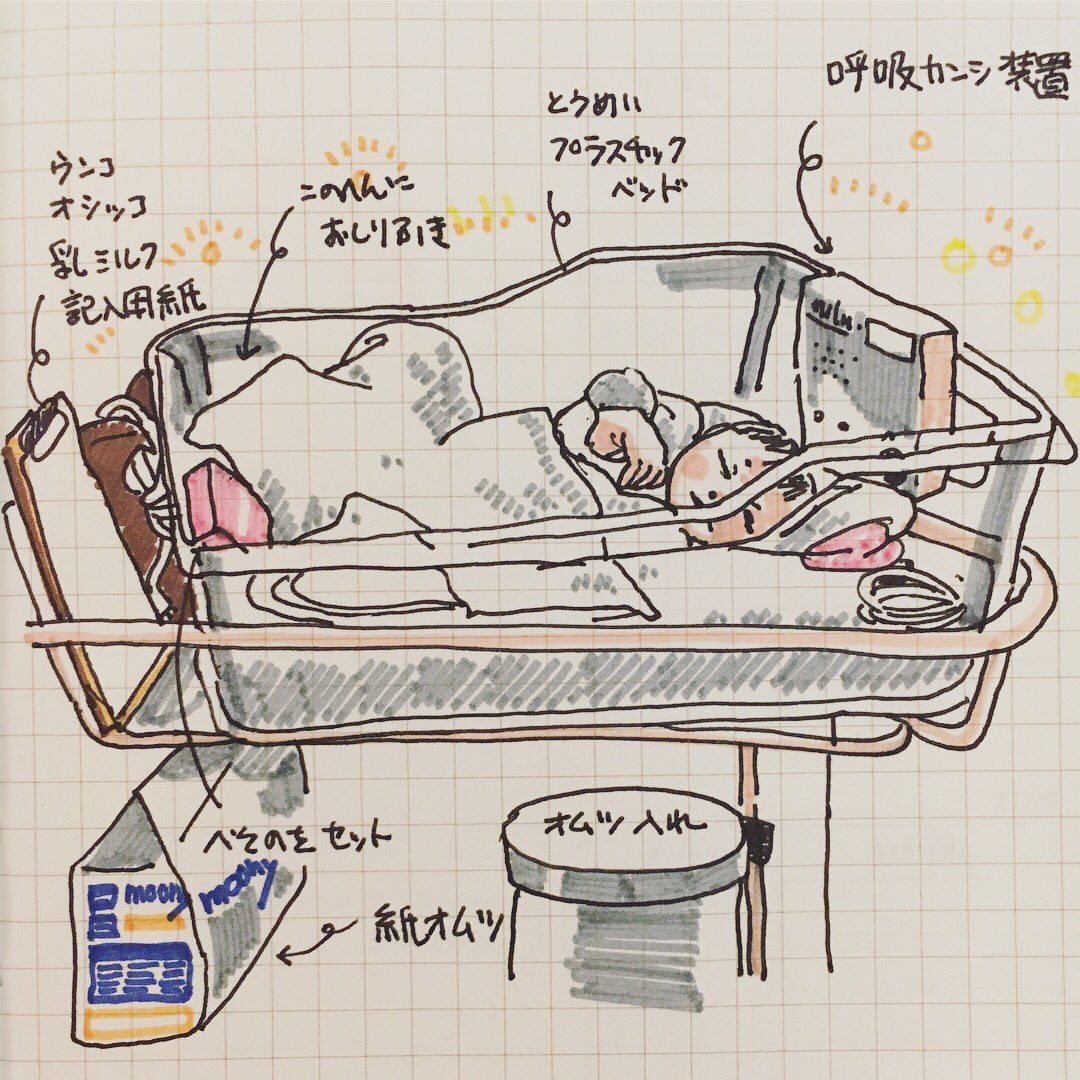 呼吸カンシ装置
とうめい
プラスチック
ベッド
このへんに
おしりふき
ウンコ
オシッコ
乳ミルク
記入用紙
オムツ入れ
へそのをセット
moony
moony
紙オムツ